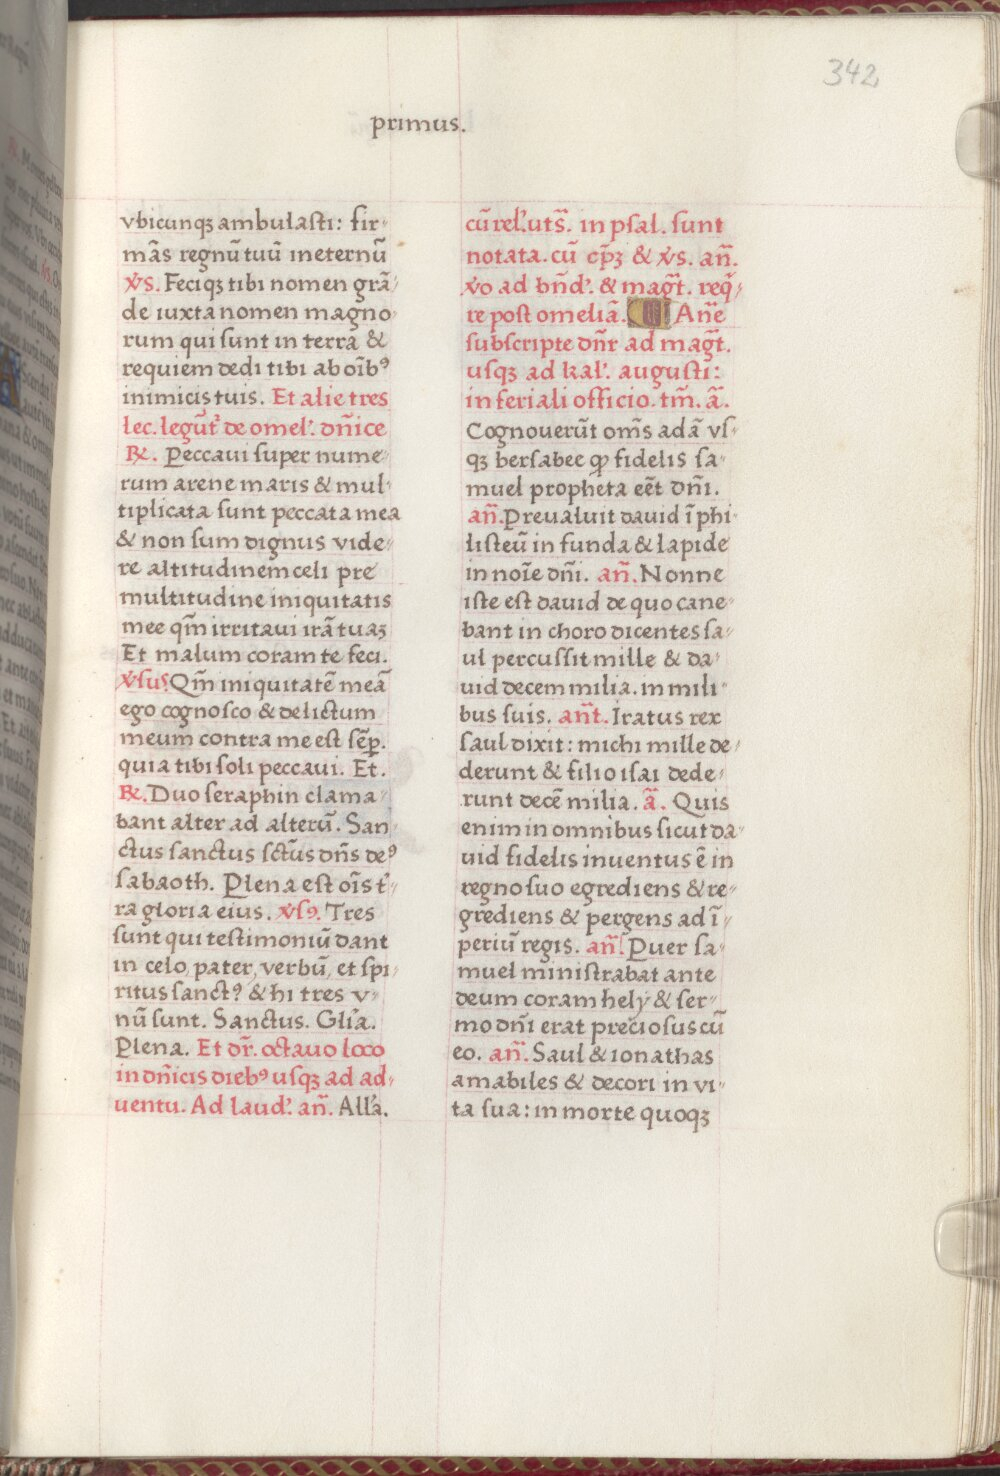 342
primus.
vbicunqꝫ ambulasti: fir-
mās regnū tuū in eternū
v̉s. Feciqꝫ tibi nomen grā-
de iuxta nomen magno-
rum qui sunt in terra &
requiem dedi tibi ab oīb⁹
inimicis tuis. Et alie tres
lec. legūt᷑ de omel'. dn̄ice
℟. Peccaui super nume-
rum arene maris & mul-
tiplicata sunt peccata mea
& non sum dignus vide-
re altitudinem celi pre
multitudine iniquitatis
mee qm̄ irritaui irā tuaꝫ
Et malum coram te feci.
v̉sus. Qm̄ iniquitatē meā
ego cognosco & delictum
meum contra me est sēꝑ.
quia tibi soli peccaui. Et.
℟. Duo seraphin clama-
bant alter ad alterū. San-
ctus sanctus sctūs dn̄s de⁹
sabaoth. Plena est oīs t'-
ra gloria eius. v̉s⁹. Tres
sunt qui testimoniū dant
in celo, pater, verbū, et spi-
ritus sanct⁹. & hi tres v-
nū sunt. Sanctus. Glīa.
Plena. Et dr̄. octauo loco
in dn̄icis dieb⁹ usqꝫ ad ad-
uentu. Ad laud'. an̄. All'a.
cū rel'. uts̄. in psal. sunt
notata. cū cp̄ꝫ & v̉s. an̄.
v̉o ad bn̄d'. & magt̄. req̄-
re post omeliā. An̄e
subscripte dn̄r ad magt̄.
usqꝫ ad kal'. augusti:
in feriali officio. tm̄. ā.
Cognouerūt om̄s a dā vs-
qꝫ bersabee ꝙ fidelis sa-
muel propheta eēt dn̄i.
an̄. Preualuit dauid ī phi-
listeū in funda & lapide
in noīe dn̄i. an̄. Nonne
iste est dauid de quo cane-
bant in choro dicentes sa-
ul percussit mille & da-
uid decem milia. in mili-
bus suis. an̄t. Iratus rex
saul dixit: michi mille de-
derunt & filio isai dede-
runt decē milia. ā. Quis
enim in omnibus sicut da-
uid fidelis inuentus ē in
regno suo egrediens & re-
grediens & pergens ad ī-
periū regis. an̄. Puer sa-
muel ministrabat ante
deum coram hely & ser-
mo dn̄i erat preciosus cū
eo. an̄. Saul & ionathas
amabiles & decori in vi-
ta sua: in morte quoqꝫ